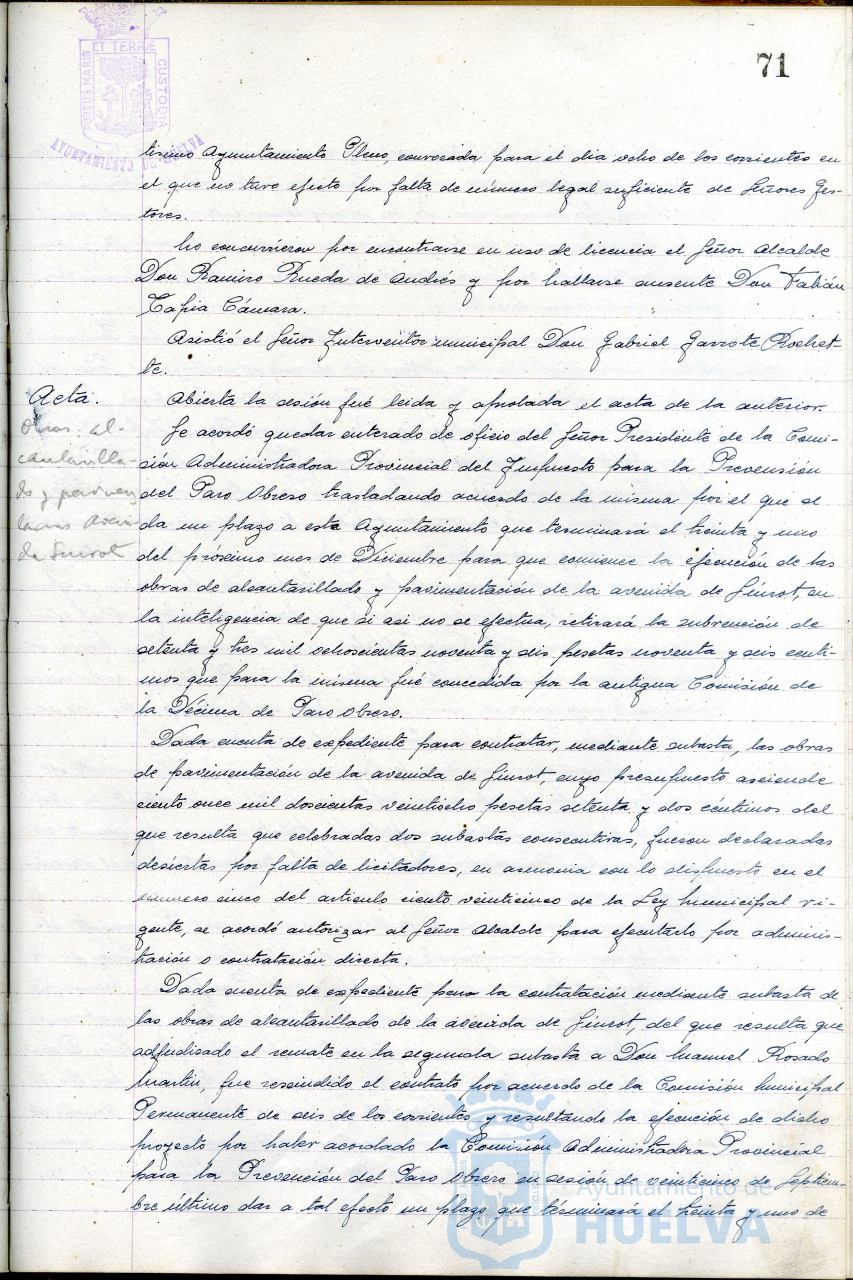 71
PORTUS MARIS ET TERRÆ CUSTODIA
AYUNTAMIENTO DE HUELVA
tísimo Ayuntamiento Pleno, convocada para el dia ocho de los corrientes en
el que no tuvo efecto por falta de número legal suficiente de Señores Ges-
tores.
No concurrieron por encontrarse en uso de licencia el Señor Alcalde
Don Ramiro Rueda de Andrés y por hallarse ausente Don Fabián
Tapia Cámara.
Asistió el Señor Interventor municipal Don Gabriel Garrote Rochet-
te.
Acta.
Abierta la sesión fué leida y aprobada el acta de la anterior.
Obras. al-
cantarilla-
do y pavimen
Aveni
da Guirot
Se acordó quedar enterado de oficio del Señor Presidente de la Comi-
sión Administradora Provincial del Impuesto para la Prevensión
del Paro Obrero trasladando acuerdo de la misma por el que se
da un plazo a este Ayuntamiento que terminará el treinta y uno
del próximo mes de Diciembre para que comience la ejecución de las
obras de alcantarillado y pavimentación de la avenida de Guirot, en
la inteligencia de que si asi no se efectua, retirará la subvención de
setenta y tres mil ochoscientas noventa y seis pesetas noventa y seis centi-
mos que para la misma fué concedida por la antigua Comisión de
la Décima de Paro Obrero.
Dada cuenta de expediente para contratar, mediante subasta, las obras
de pavimentación de la avenida de Guirot, cuyo presupuesto asciende
ciento once mil doscientas veintiocho pesetas setenta y dos céntimos del
que resulta que celebradas dos subastas consecutivas, fueron declaradas
desiertas por falta de licitadores, en armonia con lo dispuesto en el
número cinco del articulo ciento veinticinco de la Ley Municipal vi-
gente, se acordó autorizar al Señor Alcalde para ejecutarlo por adminis-
tración o contratación directa.
Dada cuenta de expediente para la contratación mediante subasta de
las obras de alcantarillado de la avenida de Guirot, del que resulta que
adjudisado el remate en la segunda subasta a Don Manuel Rosado
Martin, fue rescindido el contrato por acuerdo de la Comisión Municipal
Permanente de seis de los corrientes y resultando la ejecución de dicho
proyecto por haber acordado la Comisión Administradora Provincial
para la Prevención del Paro Obrero en sesión de veinticinco de Septiem-
bre último dar a tal efecto un plazo que terminará el treinta y uno de
Ayuntamiento de
HUELVA